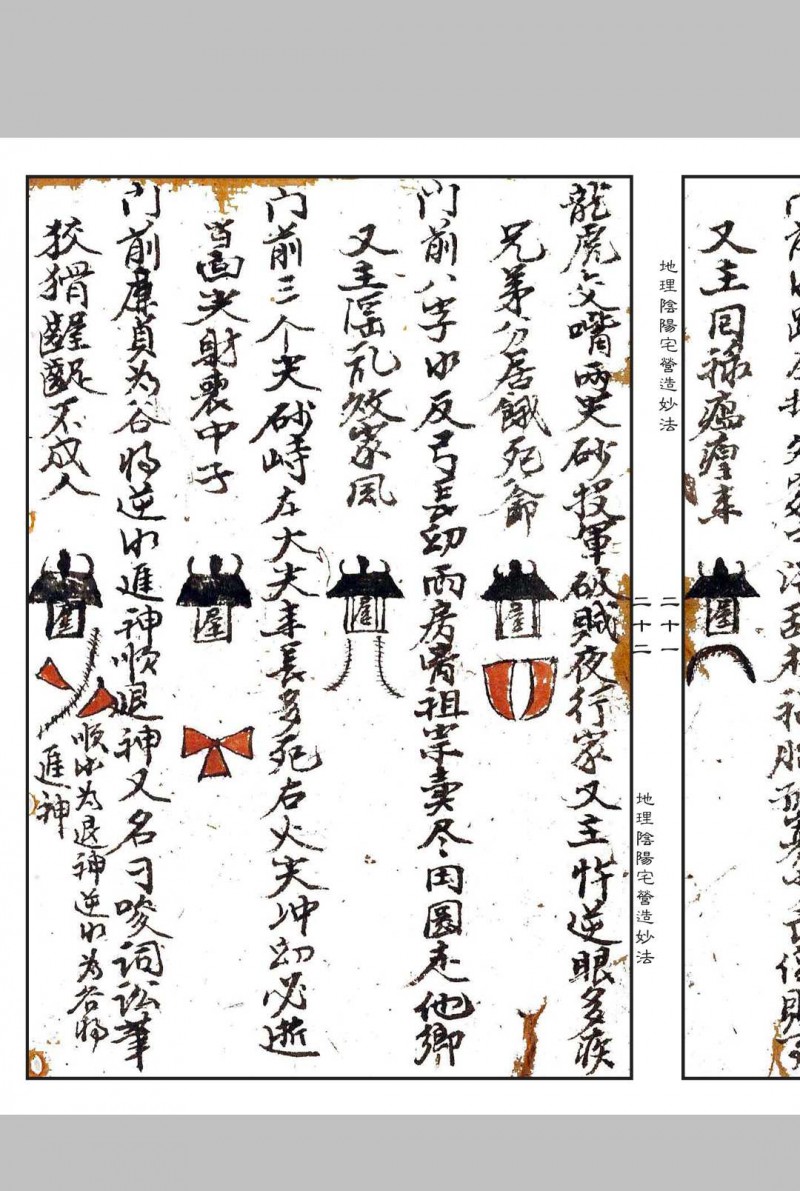 又主回祿瘟瘟未
地理陰陽宅營造妙法
二十一
二十二
地理陰陽宅營造妙法
龍虎交嘴两尖砂投軍破賊夜行家又主忤逆眼多疾
兄弟分居餓死爺
屋
门前八字水反弓長幼兩房背祖宗卖尽田園走他鄉
又主淫乱敗家風
屋
门前三个尖砂峙左火尖來長多死右火尖冲幼必逝
当面尖射喪中子
屋
门前廉貞为谷将逆水進神順退神又名刁唆詞訟筆
狡猾齷齪不成人
屋
順水为退神逆水为谷将
進神